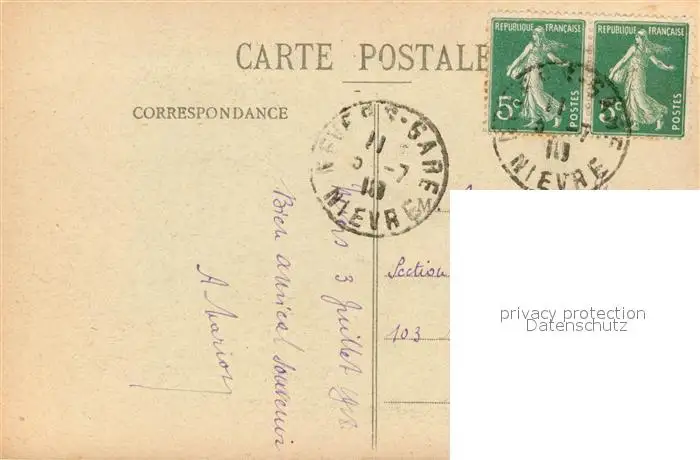 CARTE POSTALE
CORRESPONDANCE
REPUBLIQUE FRANÇAISE
5c
POSTES
REPUBLIQUE FRANÇAISE
5c
POSTES
NEVERS-GARE
11
3 -7
18
NIEVRE
NIEVRE
M.
Section
103
3 Juillet 918
Bien amical souvenir
A Marion
privacy protection
Datenschutz